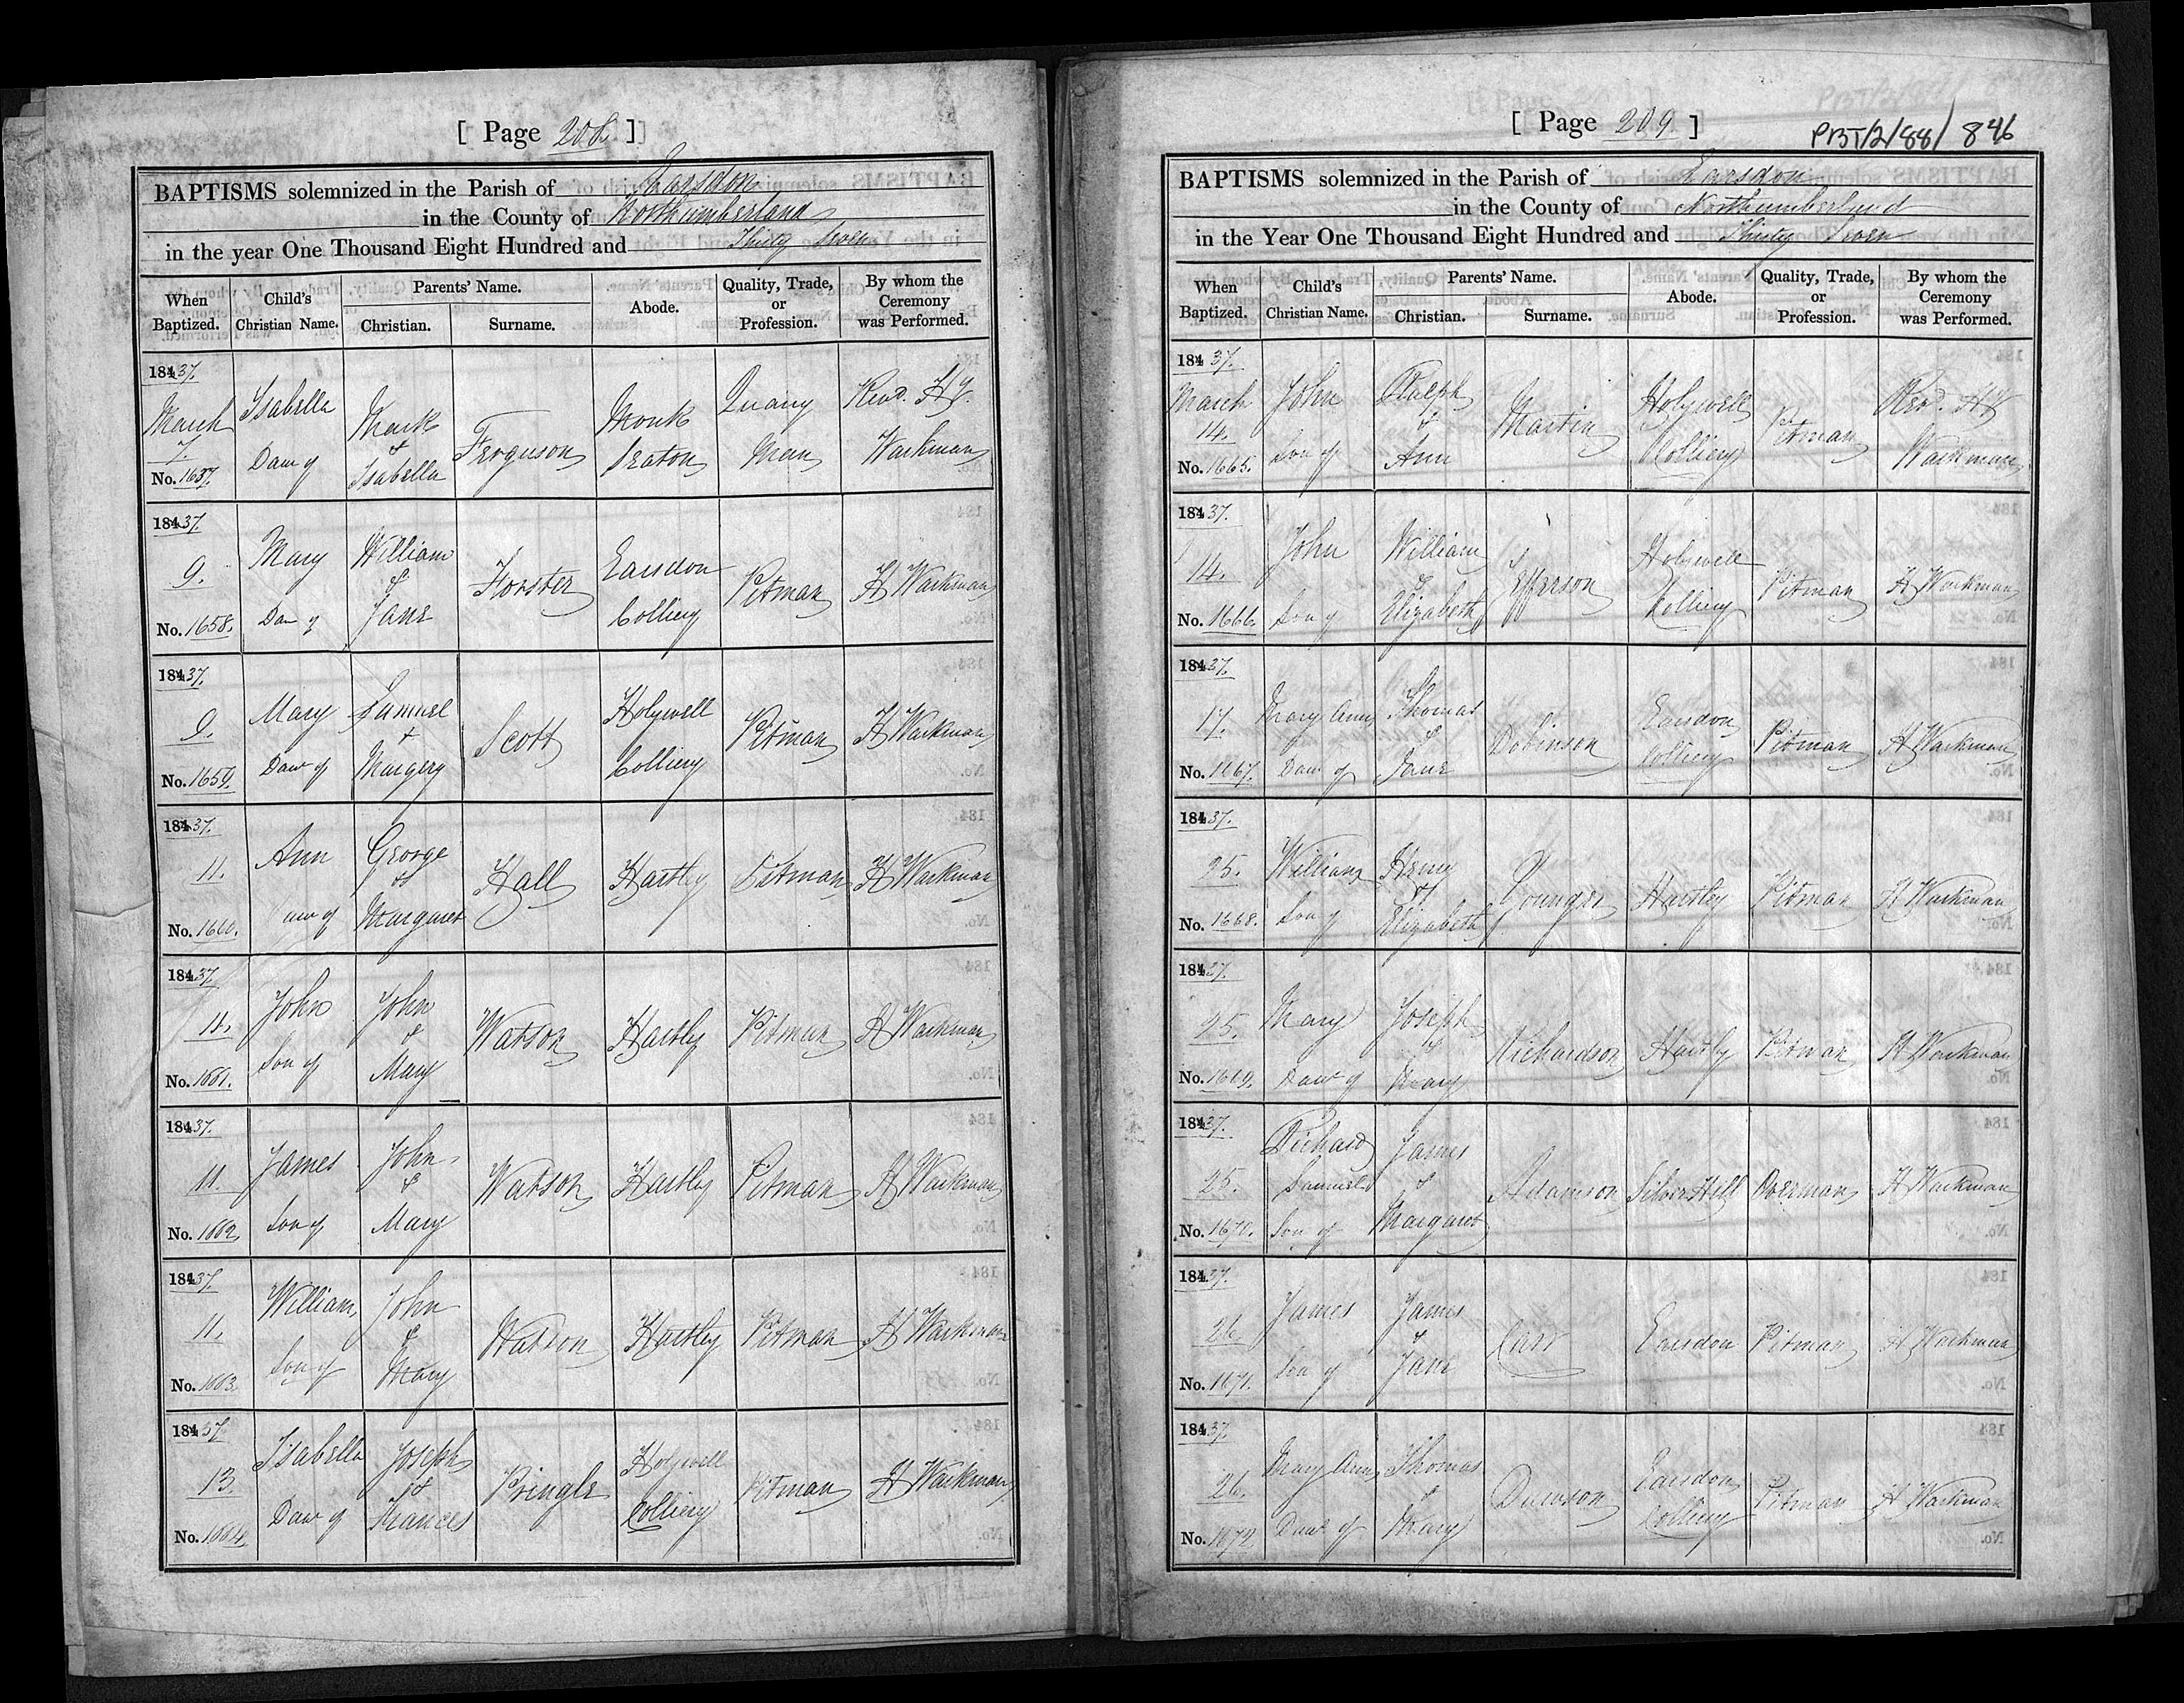 [ Page 208 ]
BAPTISMS solemnized in the Parish of Earsdon
in the County of Northumberland
in the year One Thousand Eight Hundred and Thirty Seven
When Baptized. Child's Christian Name. Parents' Name. Christian. Surname. Abode. Quality, Trade, or Profession. By whom the Ceremony was Performed.
18437. March 7. No. 1657. Isabella Daw of Mark & Isabella Ferguson Monk Seaton Quarry Man Revd. HF. Warkman
18437. 9. No. 1658. Mary Daw of William & Jane Forster Earsdon Colliery Pitman H Warkman
18437. 9. No. 1659. Mary Daw of Samuel & Margery Scott Holywell Colliery Pitman H Warkman
18437. 11. No. 1660. Ann Daw of George & Margaret Hall Hartley Pitman H Warkman
18437. 11. No. 1661. John Son of John & Mary Watson Hartley Pitman H Warkman
18437. 11. No. 1662. James Son of John & Mary Watson Hartley Pitman H Warkman
18437. 11. No. 1663. William Son of John & Mary Watson Hartley Pitman H Warkman
18437. 13. No. 1664. Isabella Daw of Joseph & Frances Pringle Holywell Colliery Pitman H Warkman
[ Page 209 ]
PBT/2/88/846
BAPTISMS solemnized in the Parish of Earsdon
in the County of Northumberland
in the Year One Thousand Eight Hundred and Thirty Seven
When Baptized. Child's Christian Name. Parents' Name. Christian. Surname. Abode. Quality, Trade, or Profession. By whom the Ceremony was Performed.
18437. March 14. No. 1665. John Son of Ralph & Ann Martin Holywell Colliery Pitman Revd. HF Warkman
18437. 14. No. 1666. John Son of William & Elizabeth Jefferson Holywell Colliery Pitman H Warkman
18437. 17. No. 1667. Mary Ann Daw of Thomas & Jane Dobinson Earsdon Colliery Pitman H Warkman
18437. 25. No. 1668. William Son of Henry & Elizabeth Younger Hartley Pitman H Warkman
18437. 25. No. 1669. Mary Daw of Joseph & Mary Richardson Hartley Pitman H Warkman
18437. 25. No. 1670. Richard Samuel Son of James & Margaret Adamson Silver Hill Overman H Warkman
18437. 26. No. 1671. James Son of James & Jane Carr Earsdon Pitman H Warkman
18437. 26. No. 1672. Mary Ann Daw of Thomas & Mary Dawson Earsdon Colliery Pitman H Warkman